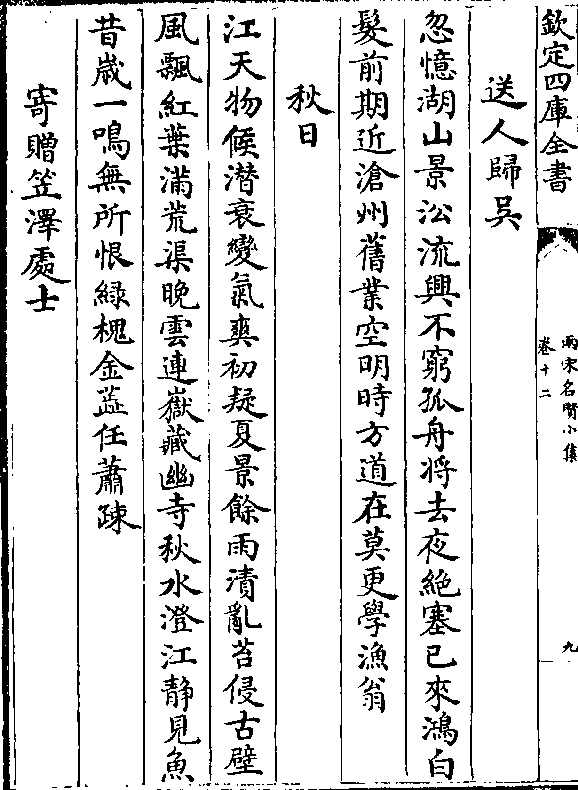 欽定四庫全書
兩宋名賢小集
卷十二
九
送人歸吳
忽憶湖山景㳂流興不窮孤舟将去夜絶塞已來鴻白
髮前期近滄州舊業空明時方道在莫更學漁翁
秋日
江天物候潛衰變氣爽初疑夏景餘雨漬亂苔侵古壁
風飄紅葉滿荒渠晩雲連嶽藏幽寺秋水澄江静見魚
昔歳一鳴無所恨緑槐金蕋任蕭踈
寄贈笠澤處士